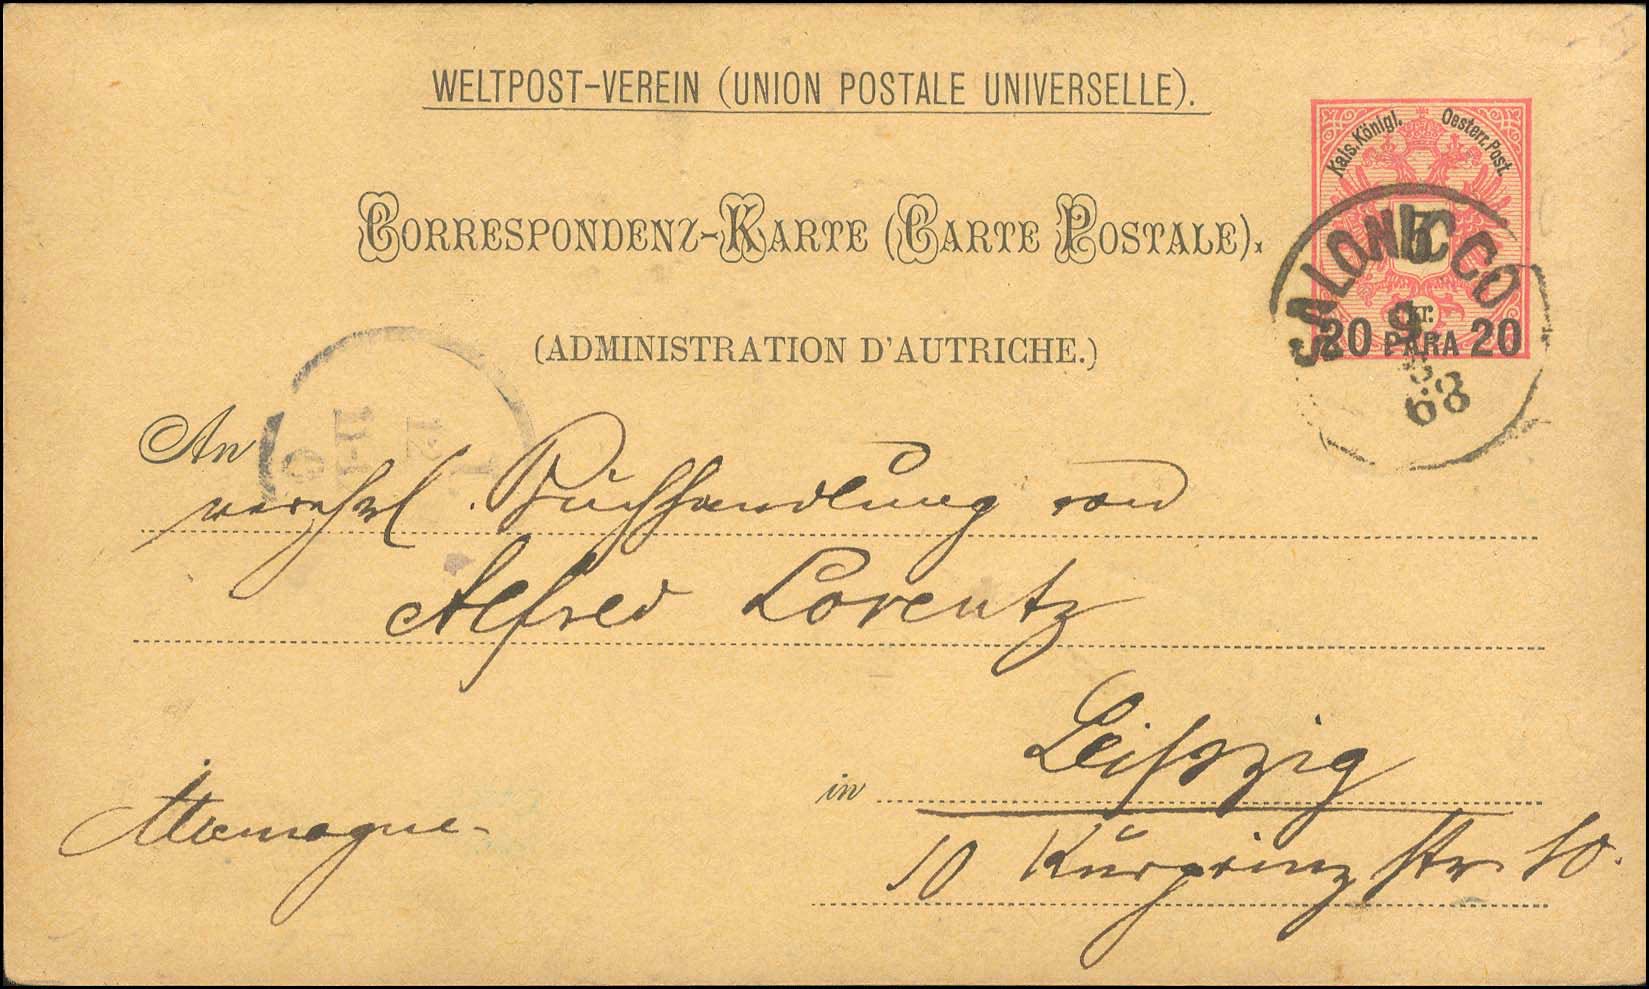 WELTPOST-VEREIN (UNION POSTALE UNIVERSELLE).
Kais. Königl. Oesterr. Post.
CORRESPONDENZ-KARTE (CARTE POSTALE).
SALONICCO
5
kr.
20 PARA 20
9
89
(ADMINISTRATION D'AUTRICHE.)
An
Buchhandlung von
Alfred Lorentz
Leipzig
in
Allemagne
10 Kurprinz Str. 10.